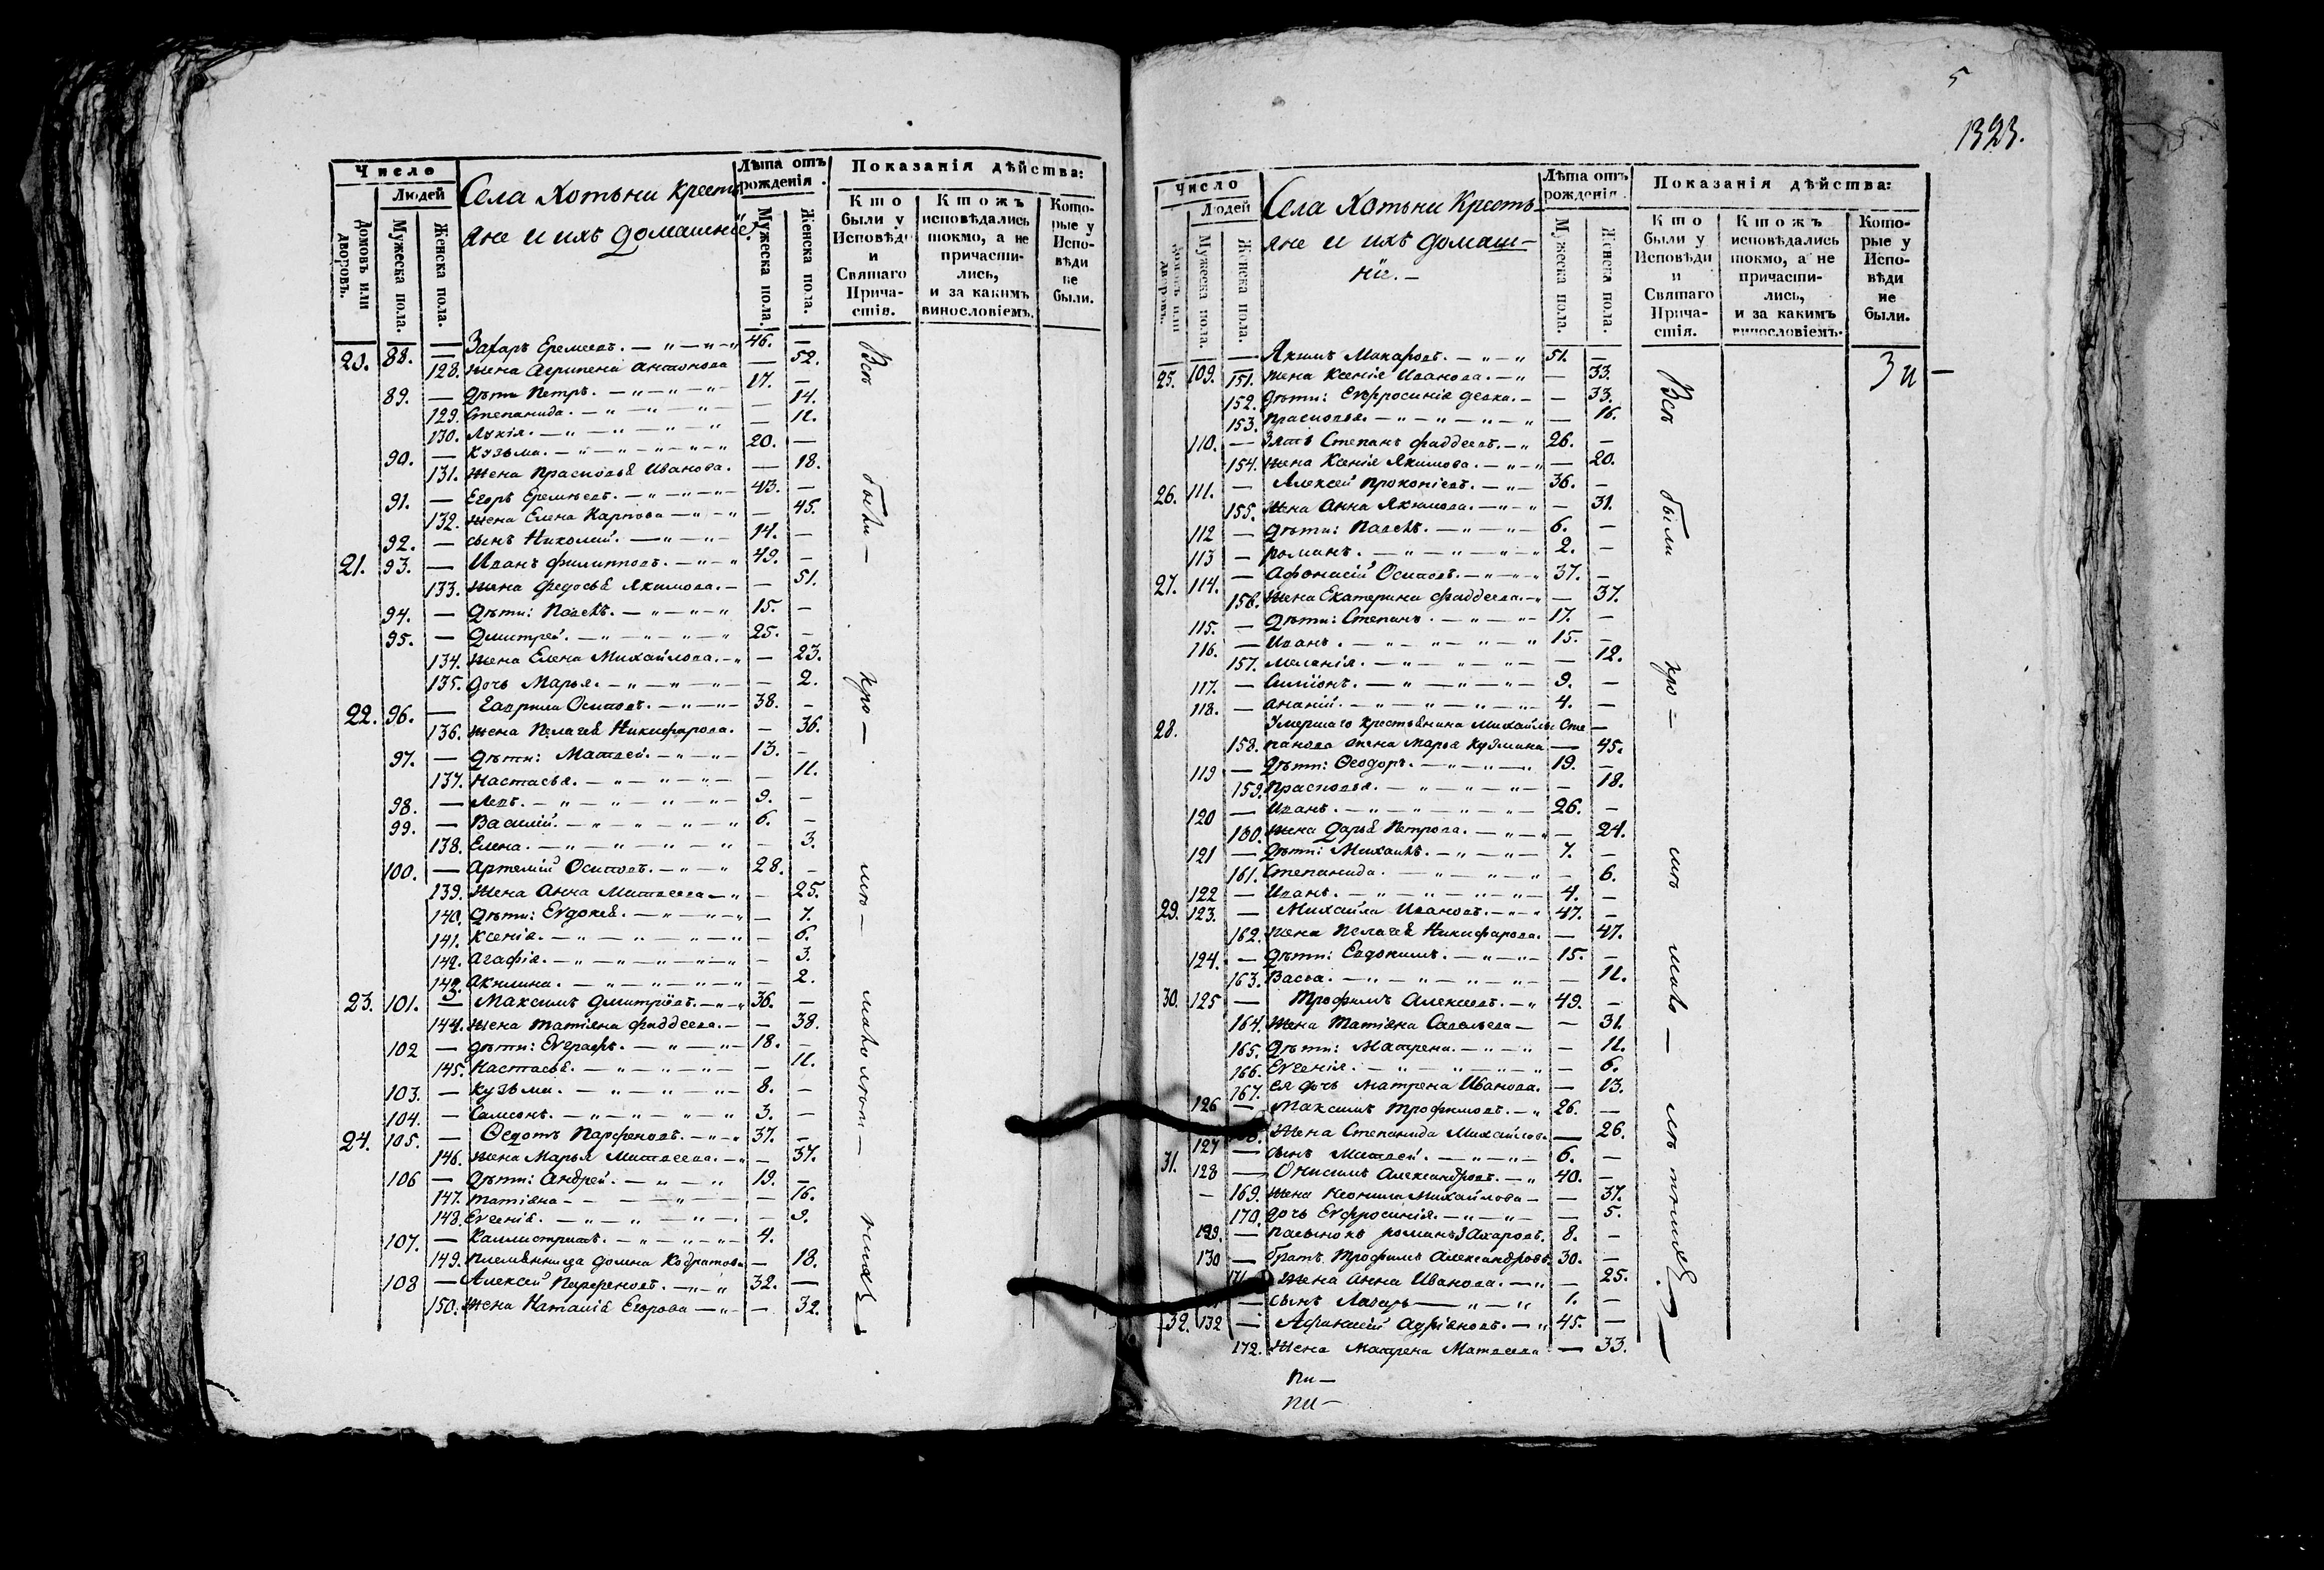 Число
Людей
Домовъ или дворовъ.
Мужеска пола.
Женска пола.
Села Хотьни Крестья
яне и ихъ домашніе.
Лѣта отъ рожденія.
Мужеска пола.
Женска пола.
Показанія дѣйства:
Кто были у Исповѣди и Святаго Прича-стія.
Ктожъ исповѣдались токмо, а не причасти-лись, и за какимъ винословіемъ.
Кото-рые у Испо-вѣди не были.
20. 88. — Захаръ Еремеевъ. 46. —
128. жена Агрипена Антонова — 52.
89. — Дѣти Петръ. 17. —
129. Степанида. — 14.
130. Лукія. — 11.
90. — Кузьма. 20. —
131. жена Прасковья Иванова. — 18.
91. — Егоръ Еремѣевъ. 43. —
132. жена Елена Карпова — 45.
92. — сынъ Николай. 14. —
21. 93. — Иванъ Филипповъ. 49. —
133. жена Федосья Якимова. — 51.
94. — Дѣти: Павелъ. 15. —
95. — Дмитрей. 25. —
134. жена Елена Михайлова. — 23.
135. дочь Марья. — 2.
22. 96. — Гаврила Осиповъ. 38. —
136. жена Пелагея Никифарова. — 36.
97. — Дѣти: Матвей. 13. —
137. Настасья. — 11.
98. — Левъ. 9. —
99. — Василій. 6. —
138. Елена. — 3.
100. — Артемій Осиповъ. 28. —
139. жена Анна Матвеева — 25.
140. Дѣти: Евдокея. — 7.
141. Ксенія. — 6.
142. Агафія. — 3.
143. Акилина. — 2.
23. 101. — Максимъ Дмитріевъ. 36. —
144. жена Татіяна Фаддеева. — 38.
102 — дѣти: Евграфъ. 18. —
145. Настасья. — 11.
103. — Кузьма. 8. —
104. — Самсонъ. 3. —
24. 105. — Ѳедотъ Парфеновъ. 37. —
146. жена Марья Матвеева. — 37.
106 — Дѣти: Андрей. 19. —
147. Татіяна — 16.
148. Евгенія. — 9.
107. — Каллистратъ. 4.
149. племянница Домна Кодратова — 18.
108 — Алексей Парфеновъ. 32. —
150. жена Наталія Егорова — 32.
Всѣ были —
5
1323.
Число
Людей
Домовъ или дворовъ.
Мужеска пола.
Женска пола.
Села Хотьни Кресть-
яне и ихъ домаш-
ніе. —
Лѣта отъ рожденія.
Мужеска пола.
Женска пола.
Показанія дѣйства:
Кто были у Исповѣди и Святаго Прича-стія.
Ктожъ исповѣдались токмо, а не причасти-лись, и за какимъ винословіемъ.
Кото-рые у Испо-вѣди не были.
25. 109. — Якимъ Макаровъ. 51. —
151. жена Ксенія Иванова. — 33.
152. Дѣти: Евфросинія девка. — 33.
153. Прасковья. — 16.
110. — Зять Степанъ Фаддеевъ. 26. —
154. жена Ксенія Якимова. — 20.
26. 111. — Алексей Прокопіевъ. 36. —
155. жена Анна Якимова. — 31.
112 — Дѣти: Павелъ. 6. —
113 — Романъ. 2. —
27. 114. — Афонасій Осиповъ. 37. —
156. жена Екатерина Фаддеева. — 37.
115. — Дѣти: Степанъ. 17. —
116. — Иванъ. 15. —
157. Меланія. — 12.
117. — Симіонъ. 9. —
118. — Ананій. 4. —
28. Умершаго крестьянина Михайлы Сте —
158. панова жена Марья Кузмина — 45.
119 — Дѣти: Ѳеодоръ. 19. —
159. Прасковья. — 18.
120 — Иванъ. 26. —
130. жена Дарья Петрова. — 24.
121 — Дѣти: Михаилъ. 7. —
161. Степанида. — 6.
122 — Иванъ. 4. —
29. 123. — Михайла Ивановъ. 47. —
162. жена Пелагея Никифарова. — 47.
124. — Дѣти: Евдокимъ. 15. —
163. Васса. — 11.
30. 125 — Трофимъ Алексеевъ. 49. —
164. жена Татіяна Савельева — 31.
165. Дѣти: Матрена. — 11.
166. Евгенія. — 6.
167. ея дочь Матрена Иванова. — 13.
126 — Максимъ Трофимовъ. 26. —
жена Степанида Михайлова — 26.
127 — сынъ Матвей. 6. —
31. 128 — Онисимъ Александровъ. 40. —
169. жена Неонила Михайлова — 37.
170. дочь Евфросинія. — 5.
129. — пасынокъ Романъ Захаровъ. 8. —
130 — братъ Трофимъ Александровъ. 30. —
171. жена Анна Иванова. — 25.
— сынъ Лазарь 1. —
32. 132 — Афанасей Адріановъ. 45. —
172. жена Матрена Матвеева — 33.
Всѣ были